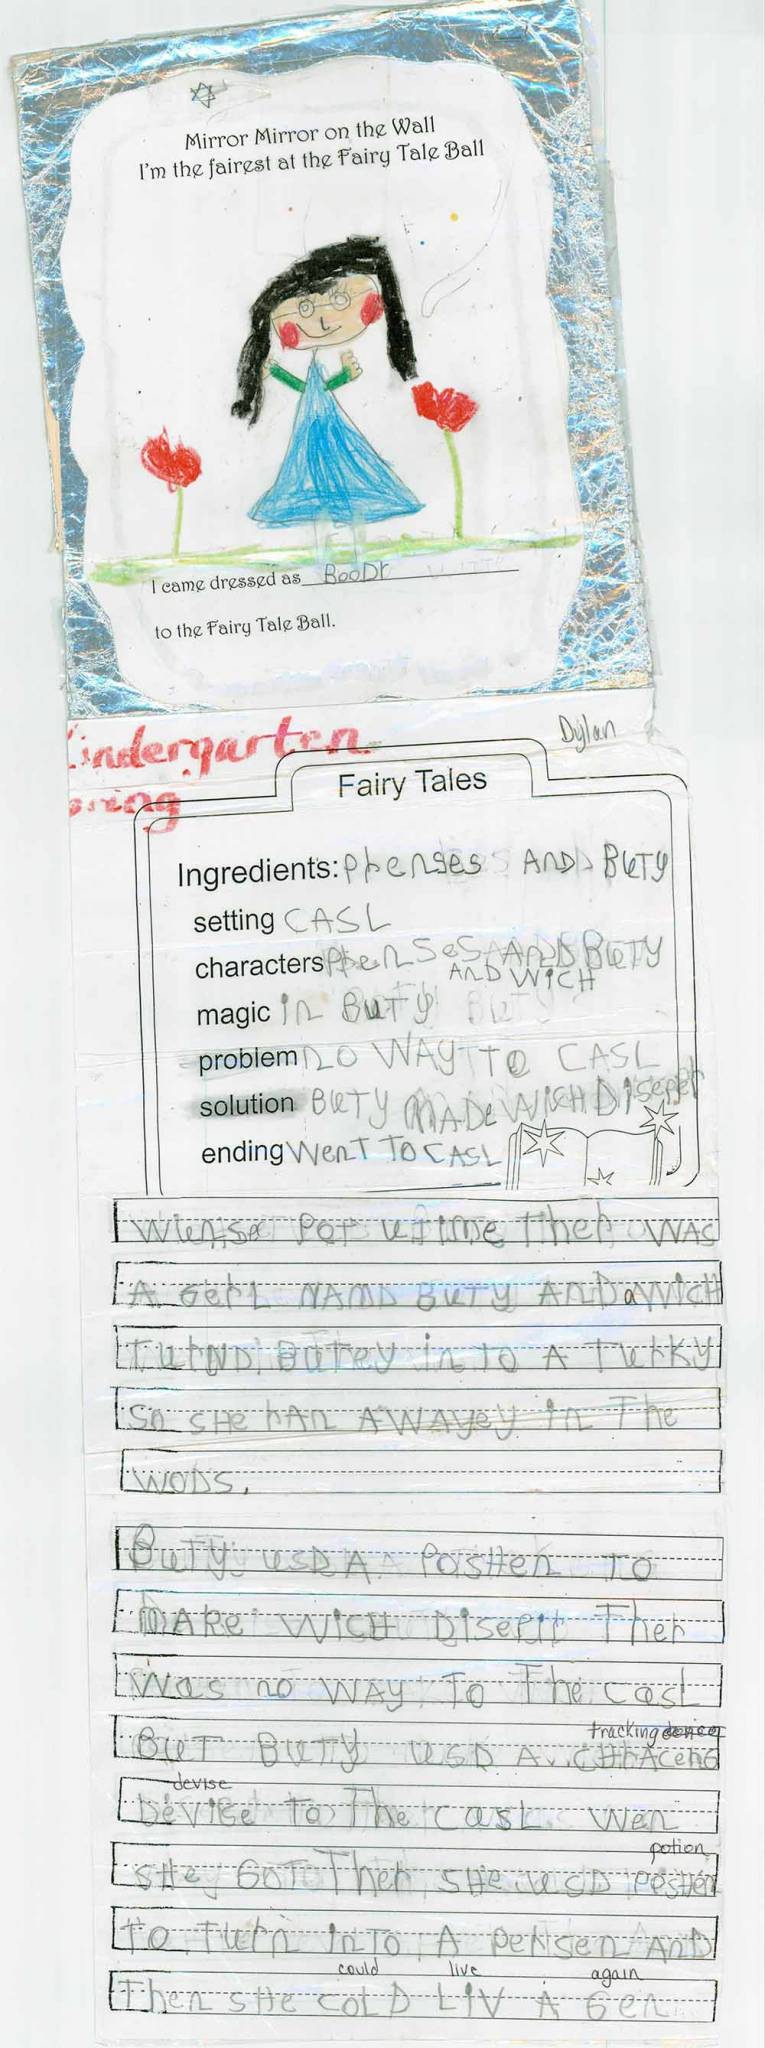 Mirror Mirror on the Wall
I'm the fairest at the Fairy Tale Ball
I came dressed as BooDY
to the Fairy Tale Ball.
Kindergarten
Dylan
Fairy Tales
Ingredients: PrenSes AND BUTY
setting CASL
characters PrenSes AND BUTY
AND WICH
magic in BUTY
problem no WAY To CASL
solution BUTY MADE WICH DISePer
ending WenT To CASL
Wense Pon u time Ther WAS
A GerL NAMD BUTY AND a WICH
TurND BUTey in To A TurKy
So SHe rAN AWAYey in The
WODS.
BUTY uSD A PosHen To
MAKe WICH DISePir Ther
WaS no WAY To The casL
tracking
BUT BUTY uSD A CHrACenG
devise
DeVise To The casL wen
potion
SHe GoT Ther SHe uSD PosHen
To Turn InTo A PerSen AND
could live again
Then SHe coLD LIV A Gen